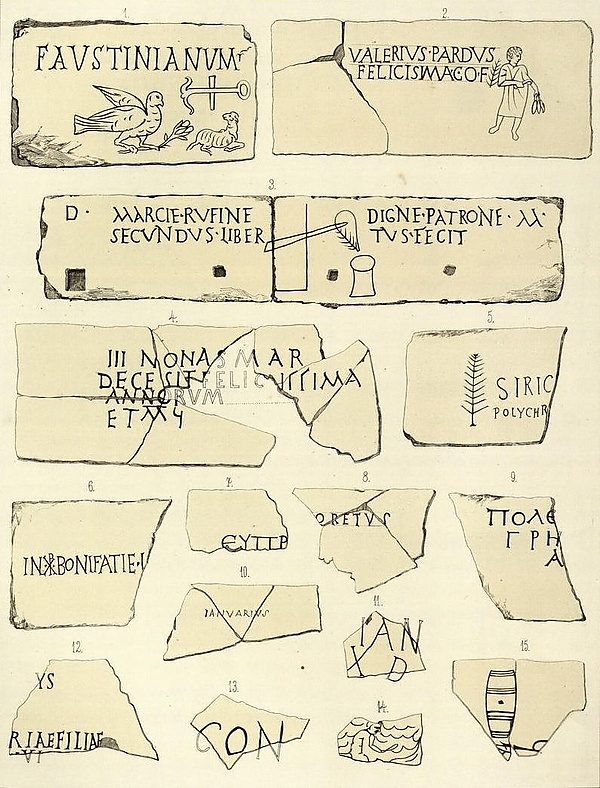 1.
FAUSTINIANUM
2.
VALERIUS·PARDUS
FELICISSIMA CO·F
3.
D·
MARCIE·RUFINE
SECUNDUS·LIBER
DIGNE·PATRONE·M·
TUS·FECIT
4.
III NONAS MAR
DECESIT FELICISSIMA
ANNORVM
ET M
5.
SIRIC
POLYCHR
6.
IN ☧ BONIFATIE·
7.
ЄΥΠΡ
8.
ORETVS
9.
ΠΟΛЄ
ΓΡΗ
Α
10.
IANVARIVS
11.
IAN
X D
12.
YS
RIAEFILIAE
VI
13.
CON
14.
15.